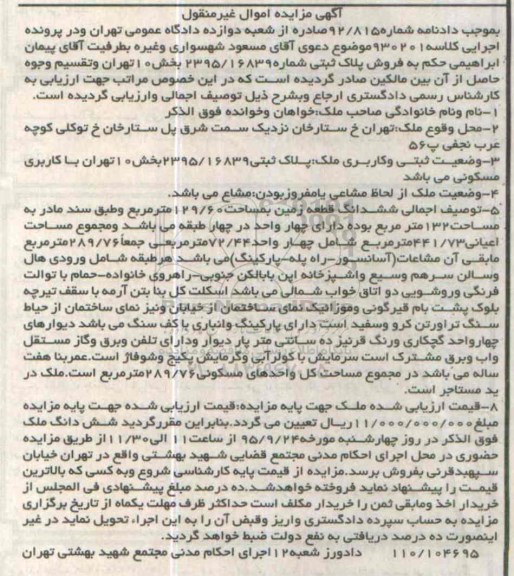 آگهی مزایده اموال غیرمنقول
بموجب دادنامه شماره۹۲/۸۱۵صادره از شعبه دوازده دادگاه عمومی تهران ودر پرونده
اجرایی کلاسه۹۳۰۲۰۱موضوع دعوی آقای مسعود شهسواری وغیره بطرفیت آقای پیمان
ابراهیمی حکم به فروش پلاک ثبتی شماره۲۳۹۵/۱۶۸۳۹ بخش۱۰تهران وتقسیم وجوه
حاصل از آن بین مالکین صادر گردیده است که در این خصوص مراتب جهت ارزیابی به
کارشناس رسمی دادگستری ارجاع وبشرح ذیل توصیف اجمالی وارزیابی گردیده است.
۱-نام ونام خانوادگی صاحب ملک:خواهان وخوانده فوق الذکر
۲-محل وقوع ملک:تهران خ ستارخان نزدیک سمت شرق پل ستارخان خ توکلی کوچه
عرب نجفی پ۵۶
۳-وضعیت ثبتی وکاربری ملک:پلاک ثبتی۲۳۹۵/۱۶۸۳۹بخش۱۰تهران با کاربری
مسکونی می باشد
۴-وضعیت ملک از لحاظ مشاعی یامفروزبودن:مشاع می باشد.
۵-توصیف اجمالی ششدانگ قطعه زمین بمساحت۱۲۹/۶۰مترمربع وطبق سند مادر به
مساحت۱۳۲متر مربع بوده دارای چهار واحد در چهار طبقه می باشد ومجموع مساحت
اعیانی۴۴۱/۷۳مترمربع شامل چهار واحد۷۲/۴۴مترمربعی جمعاً۲۸۹/۷۶مترمربع
مابقی آن مشاعات(آسانسور-راه پله-پارکینگ)می باشد هرطبقه شامل ورودی هال
وسالن سرهم وسیع واشپزخانه اپن بابالکن جنوبی-راهروی خانواده-حمام با توالت
فرنگی وروشویی دو اتاق خواب شمالی می باشد اسکلت کل بنا بتن آرمه با سقف تیرچه
بلوک پشت بام قیرگونی وموزائیک نمای ساختمان از خیابان ونیز نمای ساختمان از حیاط
سنگ تراورتن کرو وسفید است دارای پارکینگ وانباری با کف سنگ می باشد دیوارهای
چهارواحد گچکاری ورنگ قرنیز ده سانتی متر پار دیوار ودارای تلفن وبرق وگاز مستقل
واب وبرق مشترک است سرمایش با کولرآبی وگرمایش پکیج وشوفاژ است.عمربنا هفت
ساله می باشد در مجموع مساحت کل واحدهای مسکونی۲۸۹/۷۶مترمربع است.ملک در
ید مستاجر است.
۸-قیمت ارزیابی شده ملک جهت پایه مزایده:قیمت ارزیابی شده جهت پایه مزایده
مبلغ۱۱/۰۰۰/۰۰۰/۰۰۰ریال تعیین می گردد.بنابراین مقررگردید شش دانگ ملک
فوق الذکر در روز چهارشنبه مورخه۹۵/۹/۲۴از ساعت۱۱ الی۱۱/۳۰از طریق مزایده
حضوری در محل اجرای احکام مدنی مجتمع قضایی شهید بهشتی واقع در تهران خیابان
سپهبدقرنی بفروش برسد.مزایده از قیمت پایه کارشناسی شروع وبه کسی که بالاترین
قیمت را پیشنهاد نماید فروخته خواهدشد.ده درصد مبلغ پیشنهادی فی المجلس از
خریدار اخذ ومابقی ثمن را خریدار مکلف است حداکثر ظرف مهلت یکماه از تاریخ برگزاری
مزایده به حساب سپرده دادگستری واریز وقبض آن را به این اجراء تحویل نماید در غیر
اینصورت ده درصد دریافتی به نفع دولت ضبط خواهد گردید.
۱۱۰/۱۰۴۶۹۵ دادورز شعبه۱۲اجرای احکام مدنی مجتمع شهید بهشتی تهران